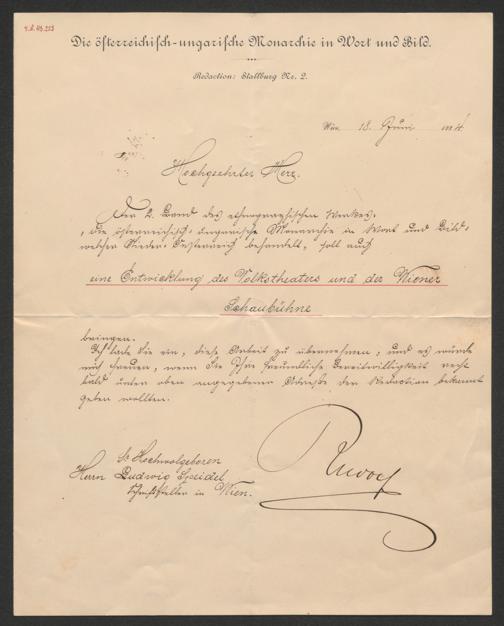 Die österreichisch-ungarische Monarchie in Wort und Bild.
Redaction: Stallburg Nr. 2.
Wien, 18. Juni 1884
Hochgeehrter Herr.
Der 2. Band des ethnographischen Werkes:
„Die österreichisch-ungarische Monarchie in Wort und Bild,"
welcher Nieder-Oesterreich behandelt, soll auch
eine Entwicklung des Volkstheaters und der Wiener
Schaubühne
bringen.
Ich lade Sie ein, diese Arbeit zu übernehmen, und es würde
mich freuen, wenn Sie Ihre freundliche Bereitwilligkeit recht
bald unter oben angegebener Adresse der Redaction bekannt
geben wollten.
Sr Hochwolgeboren
Herrn Ludwig Speidel
Schriftsteller in Wien.
Rudolf